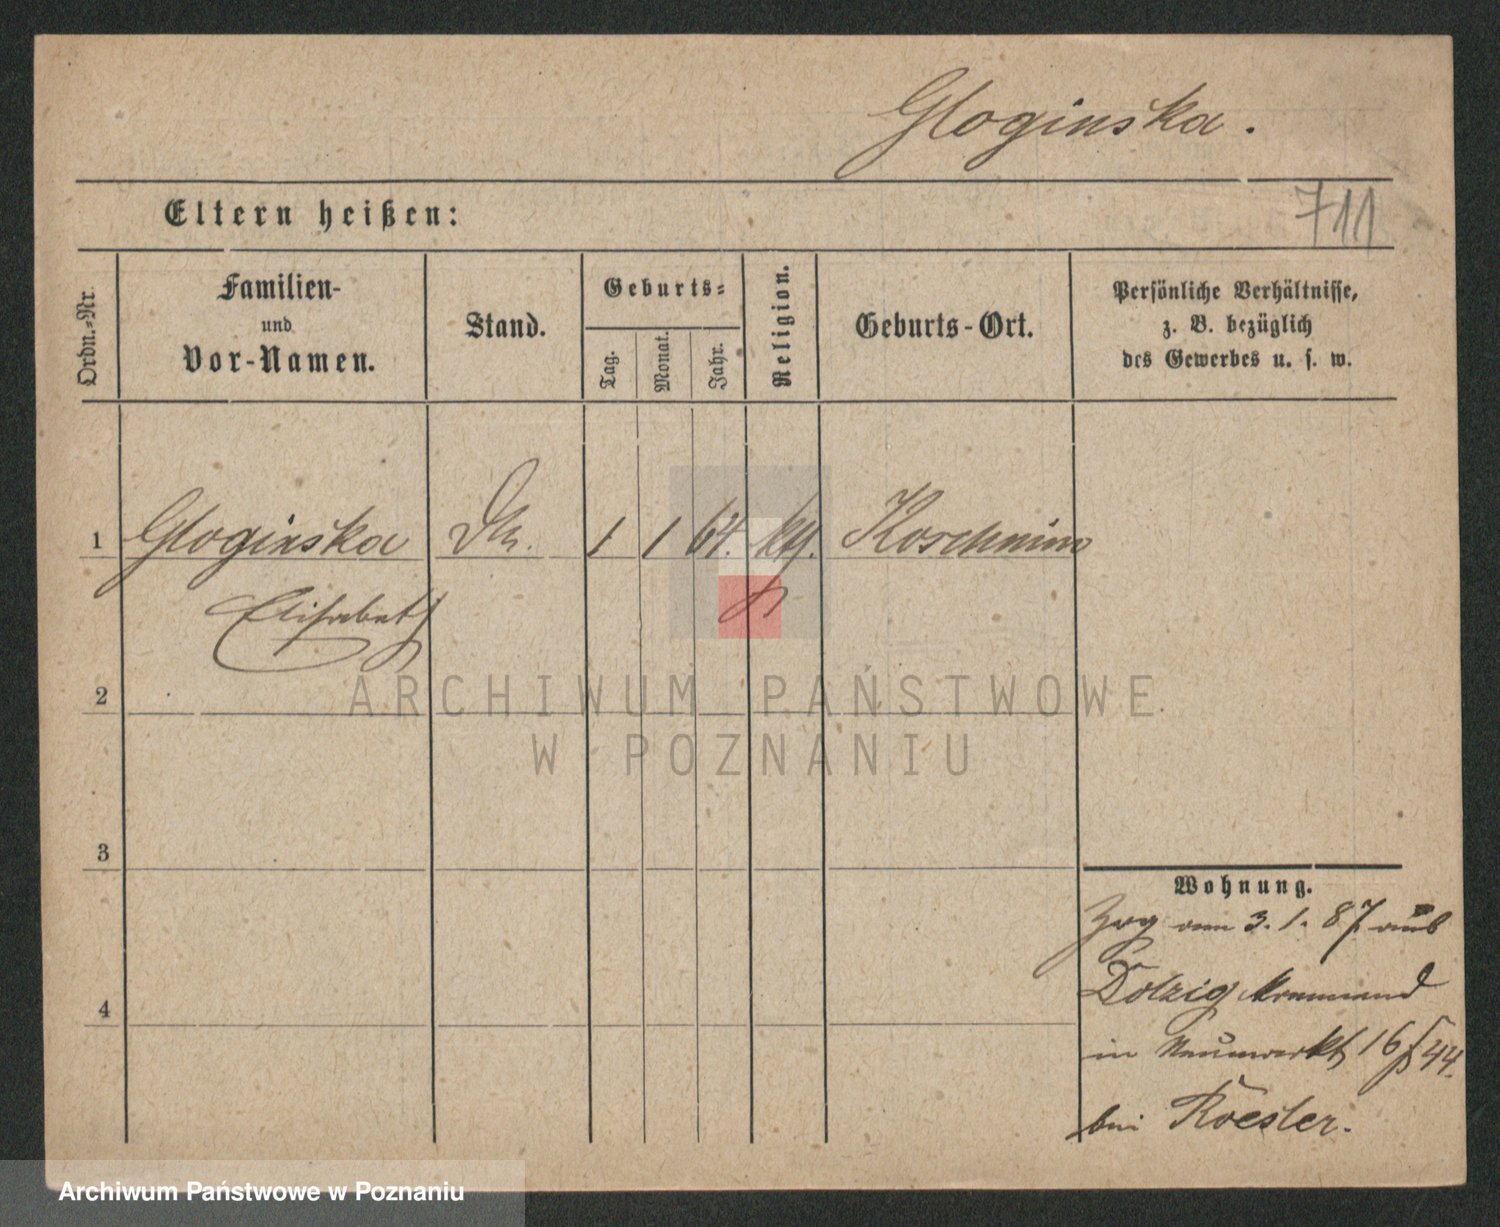 Gloginska.
711
Eltern heißen:
Ordn.=Nr.
Familien-
und
Vor-Namen.
Stand.
Geburts=
Tag.
Monat.
Jahr.
Religion.
Geburts-Ort.
Persönliche Verhältnisse,
z. B. bezüglich
des Gewerbes u. s. w.
1 Gloginska 1 1 64. Koschmin
Elisabeth
2
3
4
Wohnung.
Zog am 3. 1. 87. aus
Dolzig kommend
in Neumarkt 16/44.
bei Roesler.
ARCHIWUM PAŃSTWOWE
W POZNANIU
Archiwum Państwowe w Poznaniu